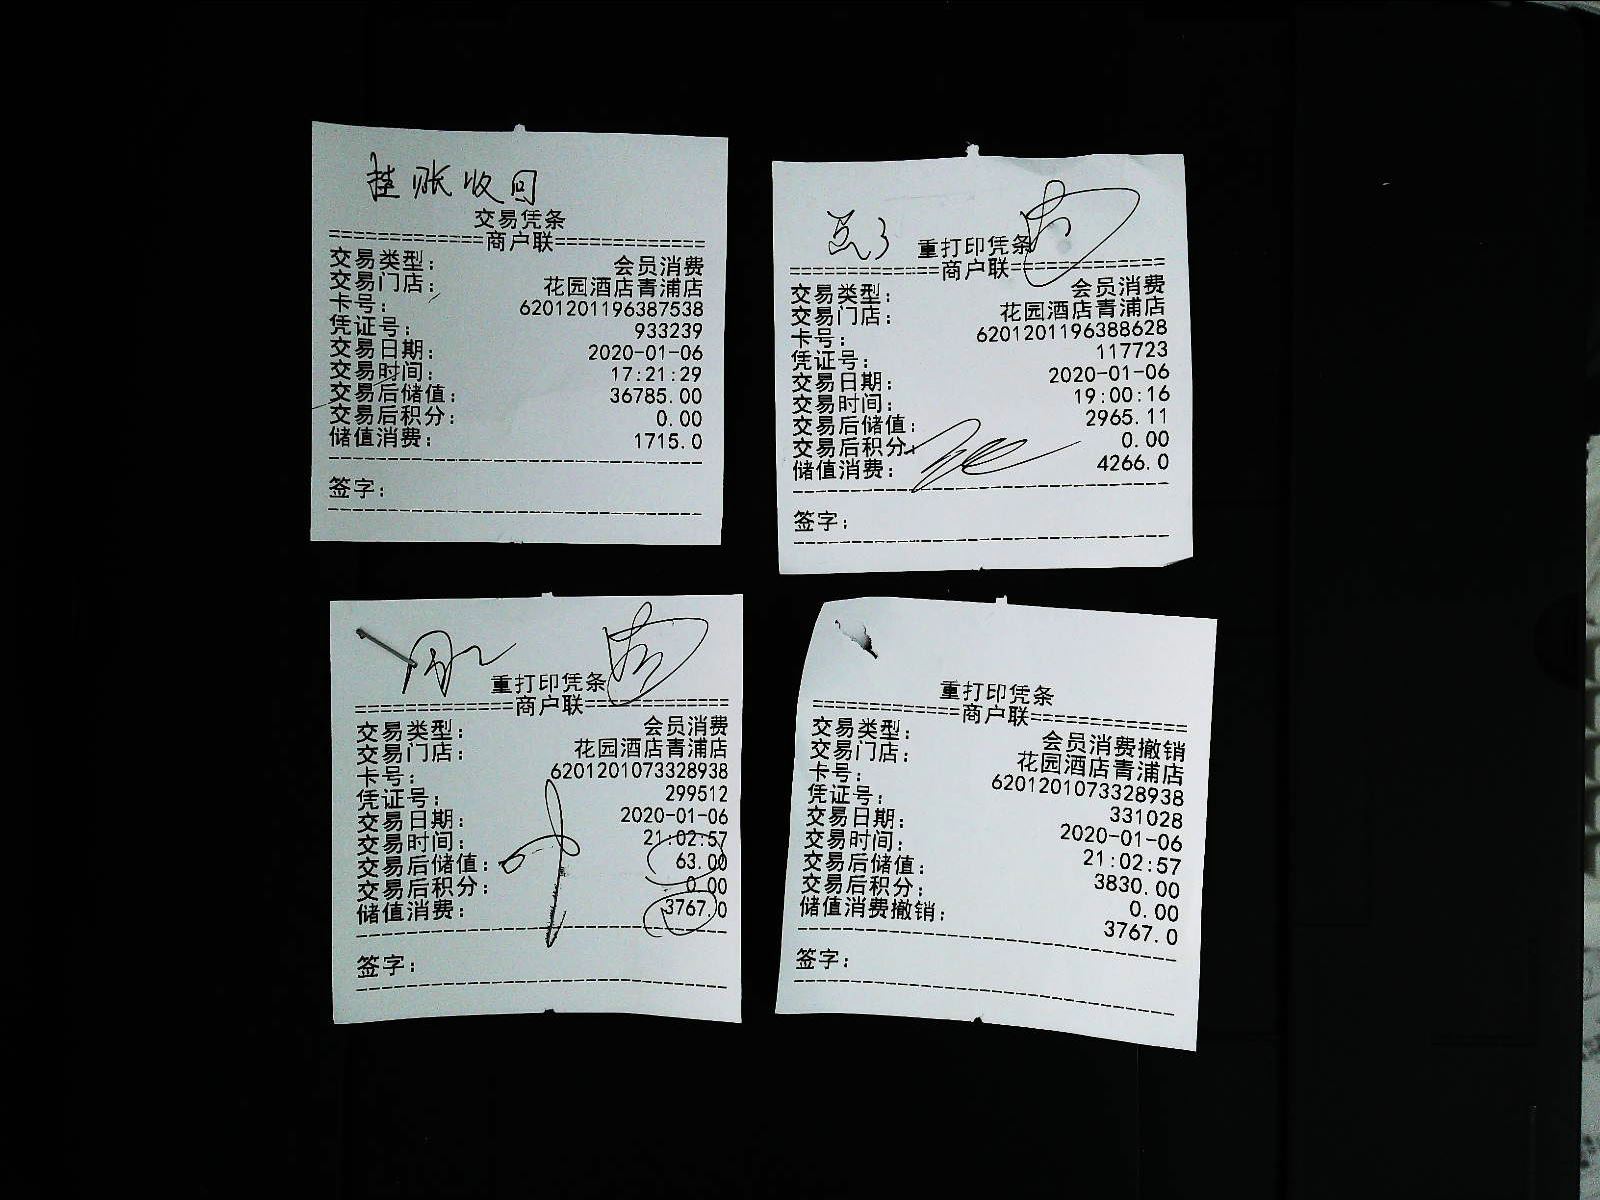 挂账收回
交易凭条
================商户联================
交易类型: 会员消费
交易门店: 花园酒店青浦店
卡号: 6201201196387538
凭证号: 933239
交易日期: 2020-01-06
交易时间: 17:21:29
交易后储值: 36785.00
交易后积分: 0.00
储值消费: 1715.0
签字:
重打印凭条
================商户联================
交易类型: 会员消费
交易门店: 花园酒店青浦店
卡号: 6201201196388628
凭证号: 117723
交易日期: 2020-01-06
交易时间: 19:00:16
交易后储值: 2965.11
交易后积分: 0.00
储值消费: 4266.0
签字:
重打印凭条
================商户联================
交易类型: 会员消费
交易门店: 花园酒店青浦店
卡号: 6201201073328938
凭证号: 299512
交易日期: 2020-01-06
交易时间: 21:02:57
交易后储值: 63.00
交易后积分: 0.00
储值消费: 3767.0
签字:
重打印凭条
================商户联================
交易类型: 会员消费撤销
交易门店: 花园酒店青浦店
卡号: 6201201073328938
凭证号: 331028
交易日期: 2020-01-06
交易时间: 21:02:57
交易后储值: 3830.00
交易后积分: 0.00
储值消费撤销: 3767.0
签字: